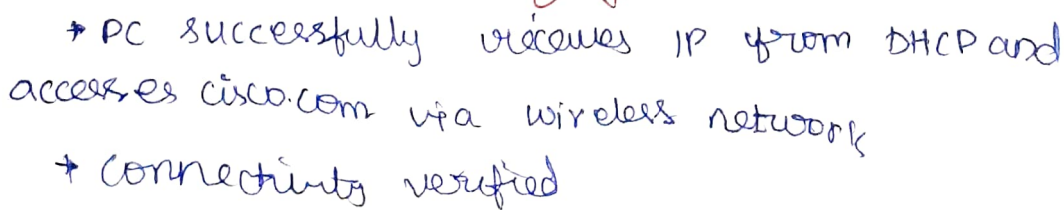 * PC successfully receives IP from DHCP and
accesses cisco.com via wireless network
* connectivity verified